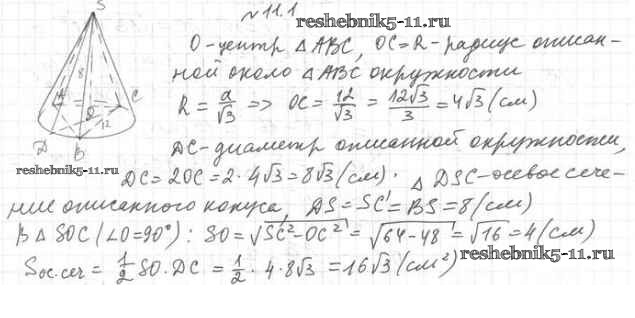 № 11.1
reshebnik5-11.ru
S
8
A
O
C
12
D
B
reshebnik5-11.ru
O-центр △ABC, OC=R-радиус описан-
ной около △ABC окружности
R = a/√3 => OC = 12/√3 = 12√3/3 = 4√3 (см)
DC-диаметр описанной окружности,
DC = 2OC = 2 · 4√3 = 8√3 (см). △ DSC-осевое сече-
ние описанного конуса, DS = SC = BS = 8 (см)
В △ SOC (∠O=90°): SO = √SC²-OC² = √64-48 = √16 = 4 (см)
Sос.сеч = 1/2 SO · DC = 1/2 · 4 · 8√3 = 16√3 (см²)
reshebnik5-11.ru